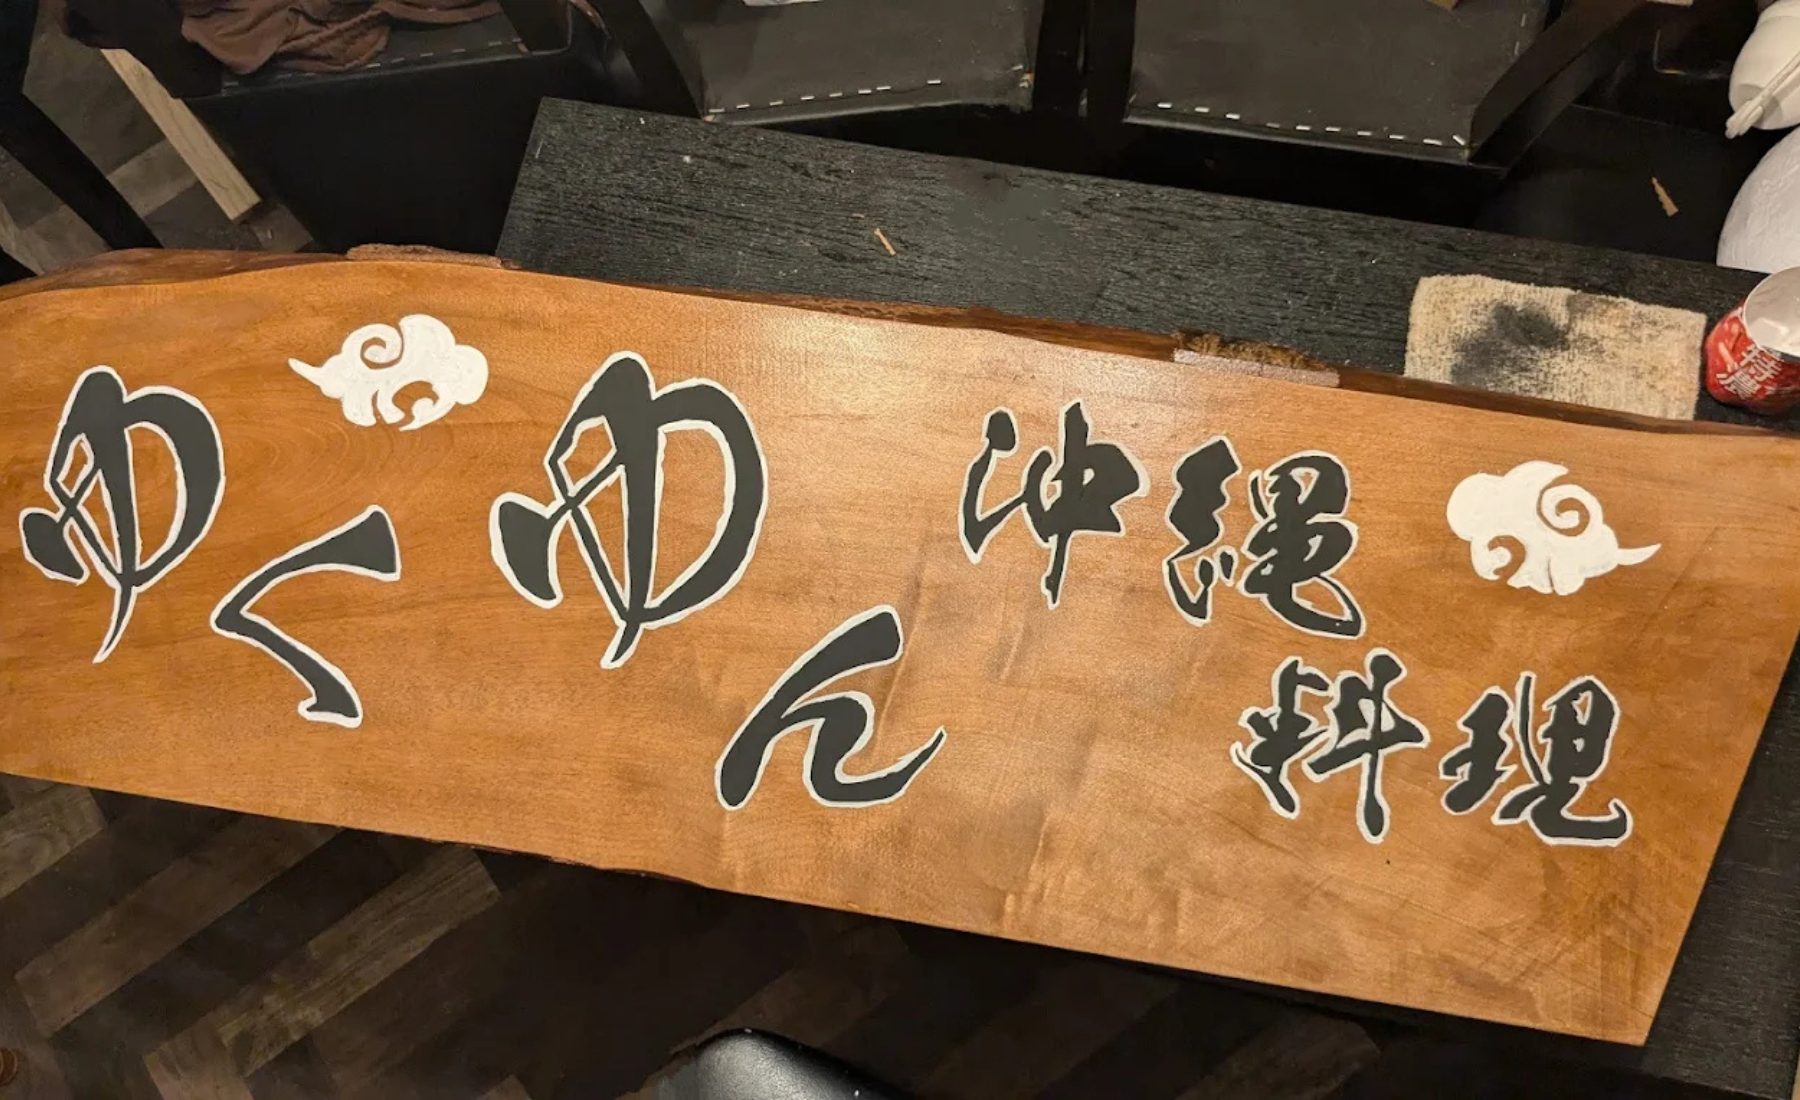 ゆくゆん
沖縄
料現